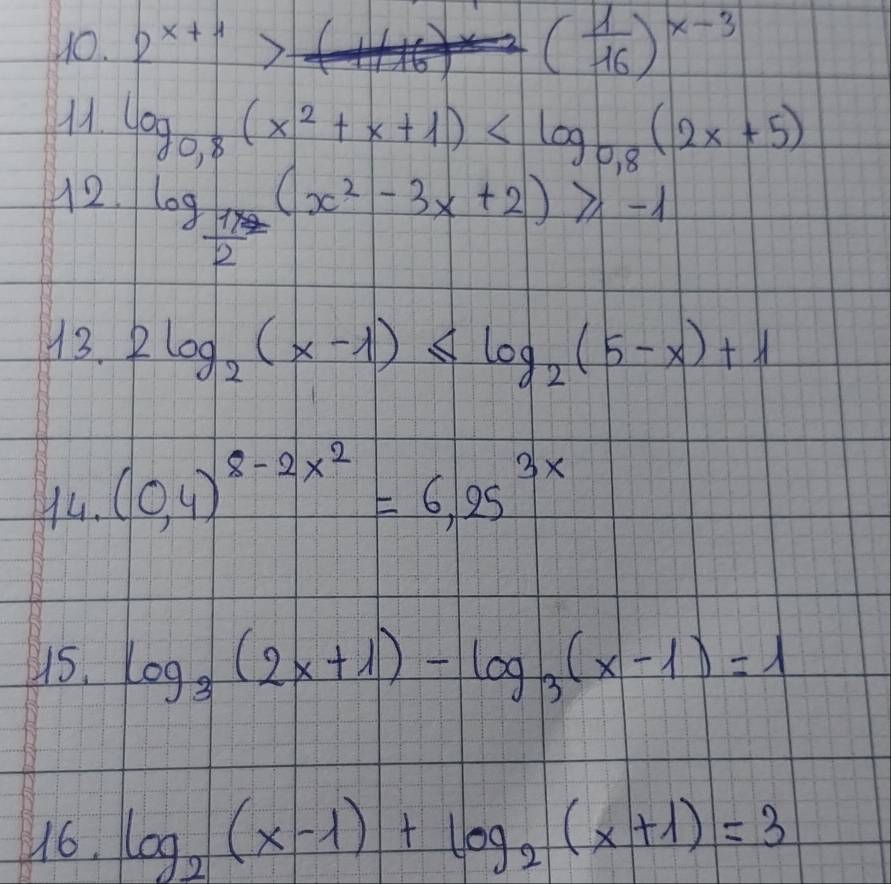 10. 2^{x+1} > (1/16)^{x-3}
11. log_{0,8} (x² + x + 1) < log_{0,8} (2x + 5)
12. log_{1/2} (x² - 3x + 2) ⩾ -1
13. 2 log_2 (x - 1) ⩽ log_2 (5 - x) + 1
14. (0,4)^{8 - 2x²} = 6,25^{3x}
15. log_3 (2x + 1) - log_3 (x - 1) = 1
16. log_2 (x - 1) + log_2 (x + 1) = 3